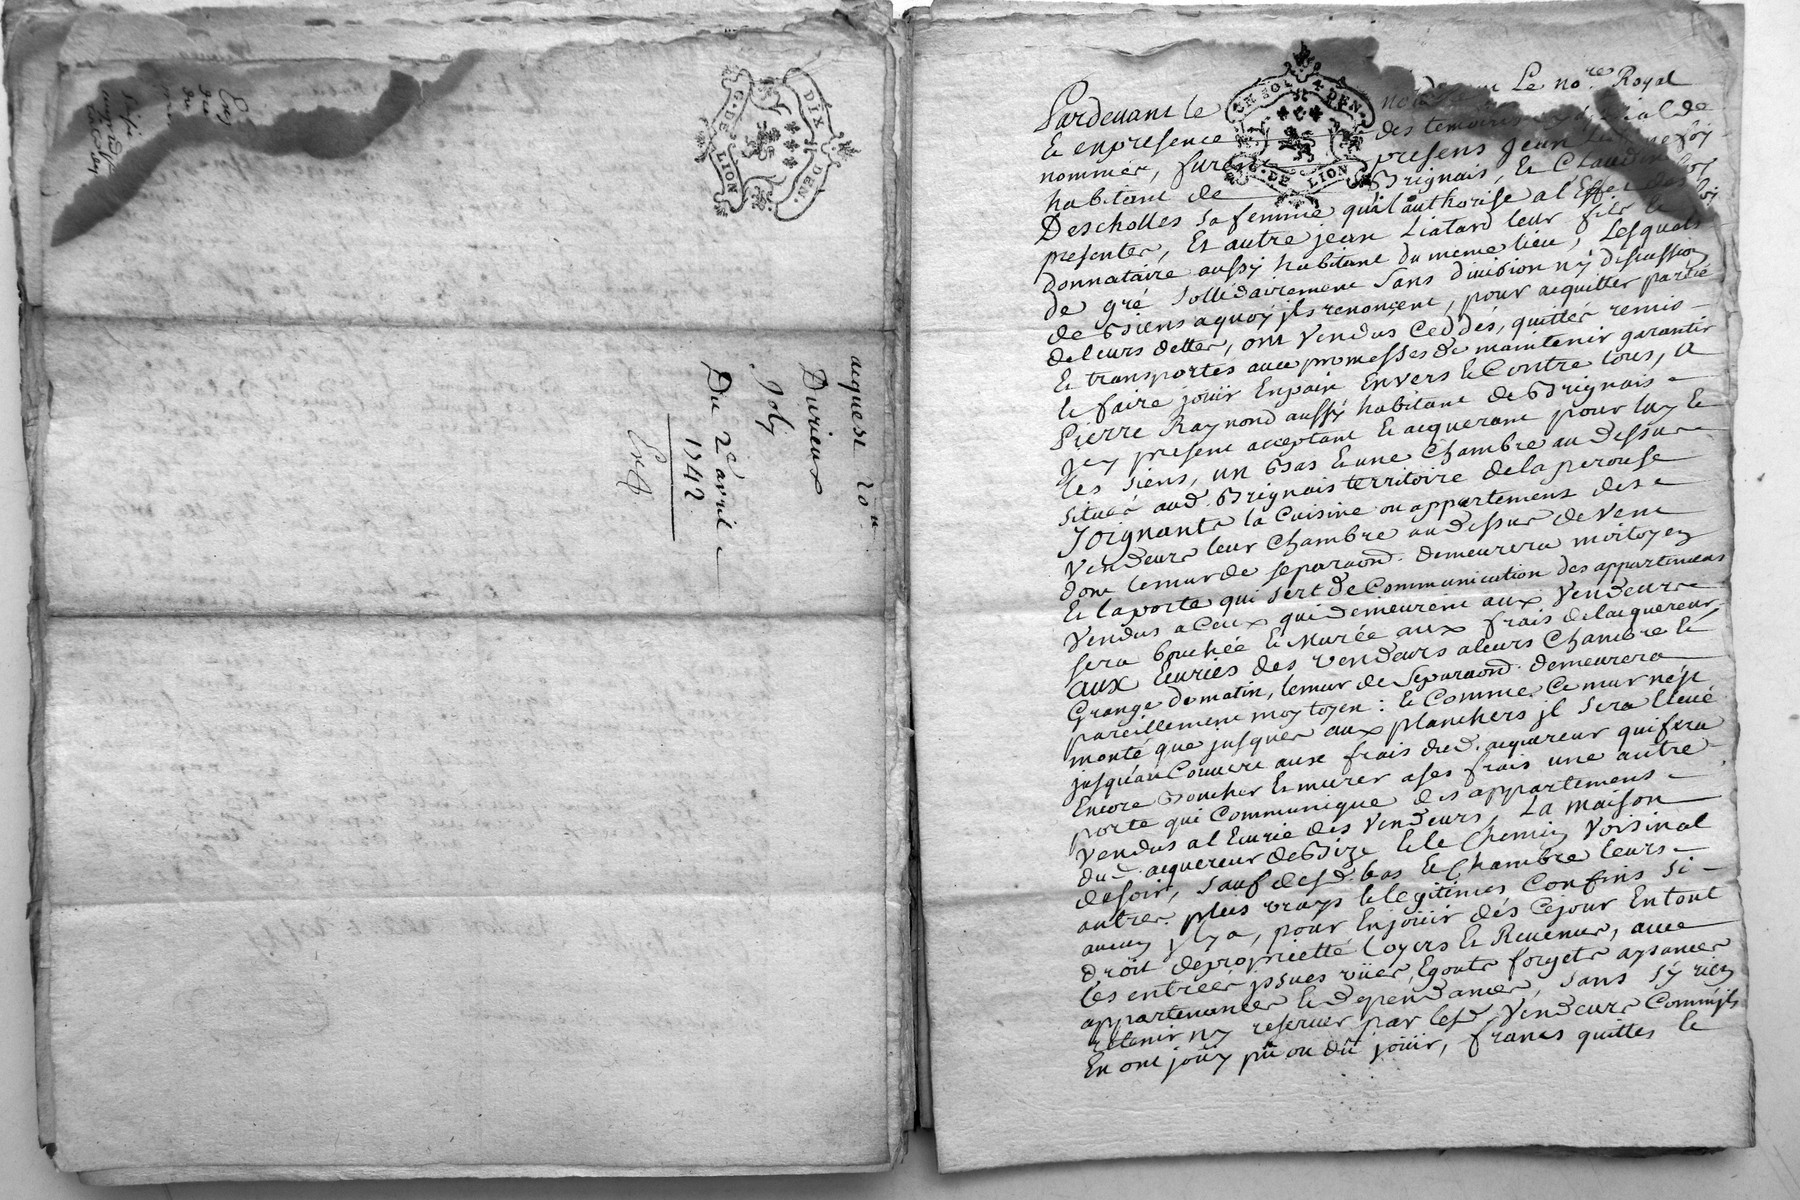 G. DE LION
DIX DEN.
acquest 20ᵗᵗ
Durieux
Joly
Du 2ᵉ avril
1742
Exp
Pardevant le nottaire Le noʳᵉ Royal
Et enpresence des temoins
nommés, furent presens Jean
habitant de Brignais, et Claudine
Descholles sa femme quil authorise al Effet des
presentes, Et autre jean Liatard leur fils
donnataire aussy habitant du meme lieu, Lesquels
de gré sollidairement sans division ny discussion
de Biens aquoy jls renoncent, pour acquitter partie
deleurs dettes, ont vendus Ceddés, quittés remis
Et transportés avec promesses de maintenir garantir
Et faire jouir Enpaix Envers Et Contre tous, a
Pierre Raynond aussy habitant de Brignais
jcy present acceptant Et acquerant pour luy Et
les siens, un Bas Et une Chambre au dessus
situés aud. Brignais territoire de la perouse
Joignants la Cuisine ou appartement des
vendeurs leur Chambre au dessus de vent
dont lemur de separaon̄. demeurera moitoyen
Et la porte qui sert de Communication des appartemens
vendus a Ceux qui demeurent aux vendeurs
sera bouchée Et Murée aux frais delacquereur,
aux Ecuries des vendeurs aleurs Chambre Et
Grange de matin, lemur de separaon̄. demeurera
pareillement moytoyen : Et Comme Ce mur nést
monté que jusques aux planchers jl sera Elevé
jusquau Couvert aux frais dud. acquereur qui fera
Encore Boucher Et murer ases frais une autre
porte qui Communique des appartemens
vendus al Ecurie des vendeurs, La maison
dud. acquereur de Bize Et le Chemin voisinal
desoir, sauf desd. bas Et Chambre leurs
autres plus vrays Et legitimes Confins si
aucun y lya, pour Enjouir dés Cejour Entout
droit depropriette Loyers Et Revenus, avec
les entrées jssues vües, Egouts forgets aysances
appartenances Et dependances, sans sy rien
retenir ny reserver par lesd. vendeurs Commejls
En ont jouy pû ou dû jouir, francs quittes Et